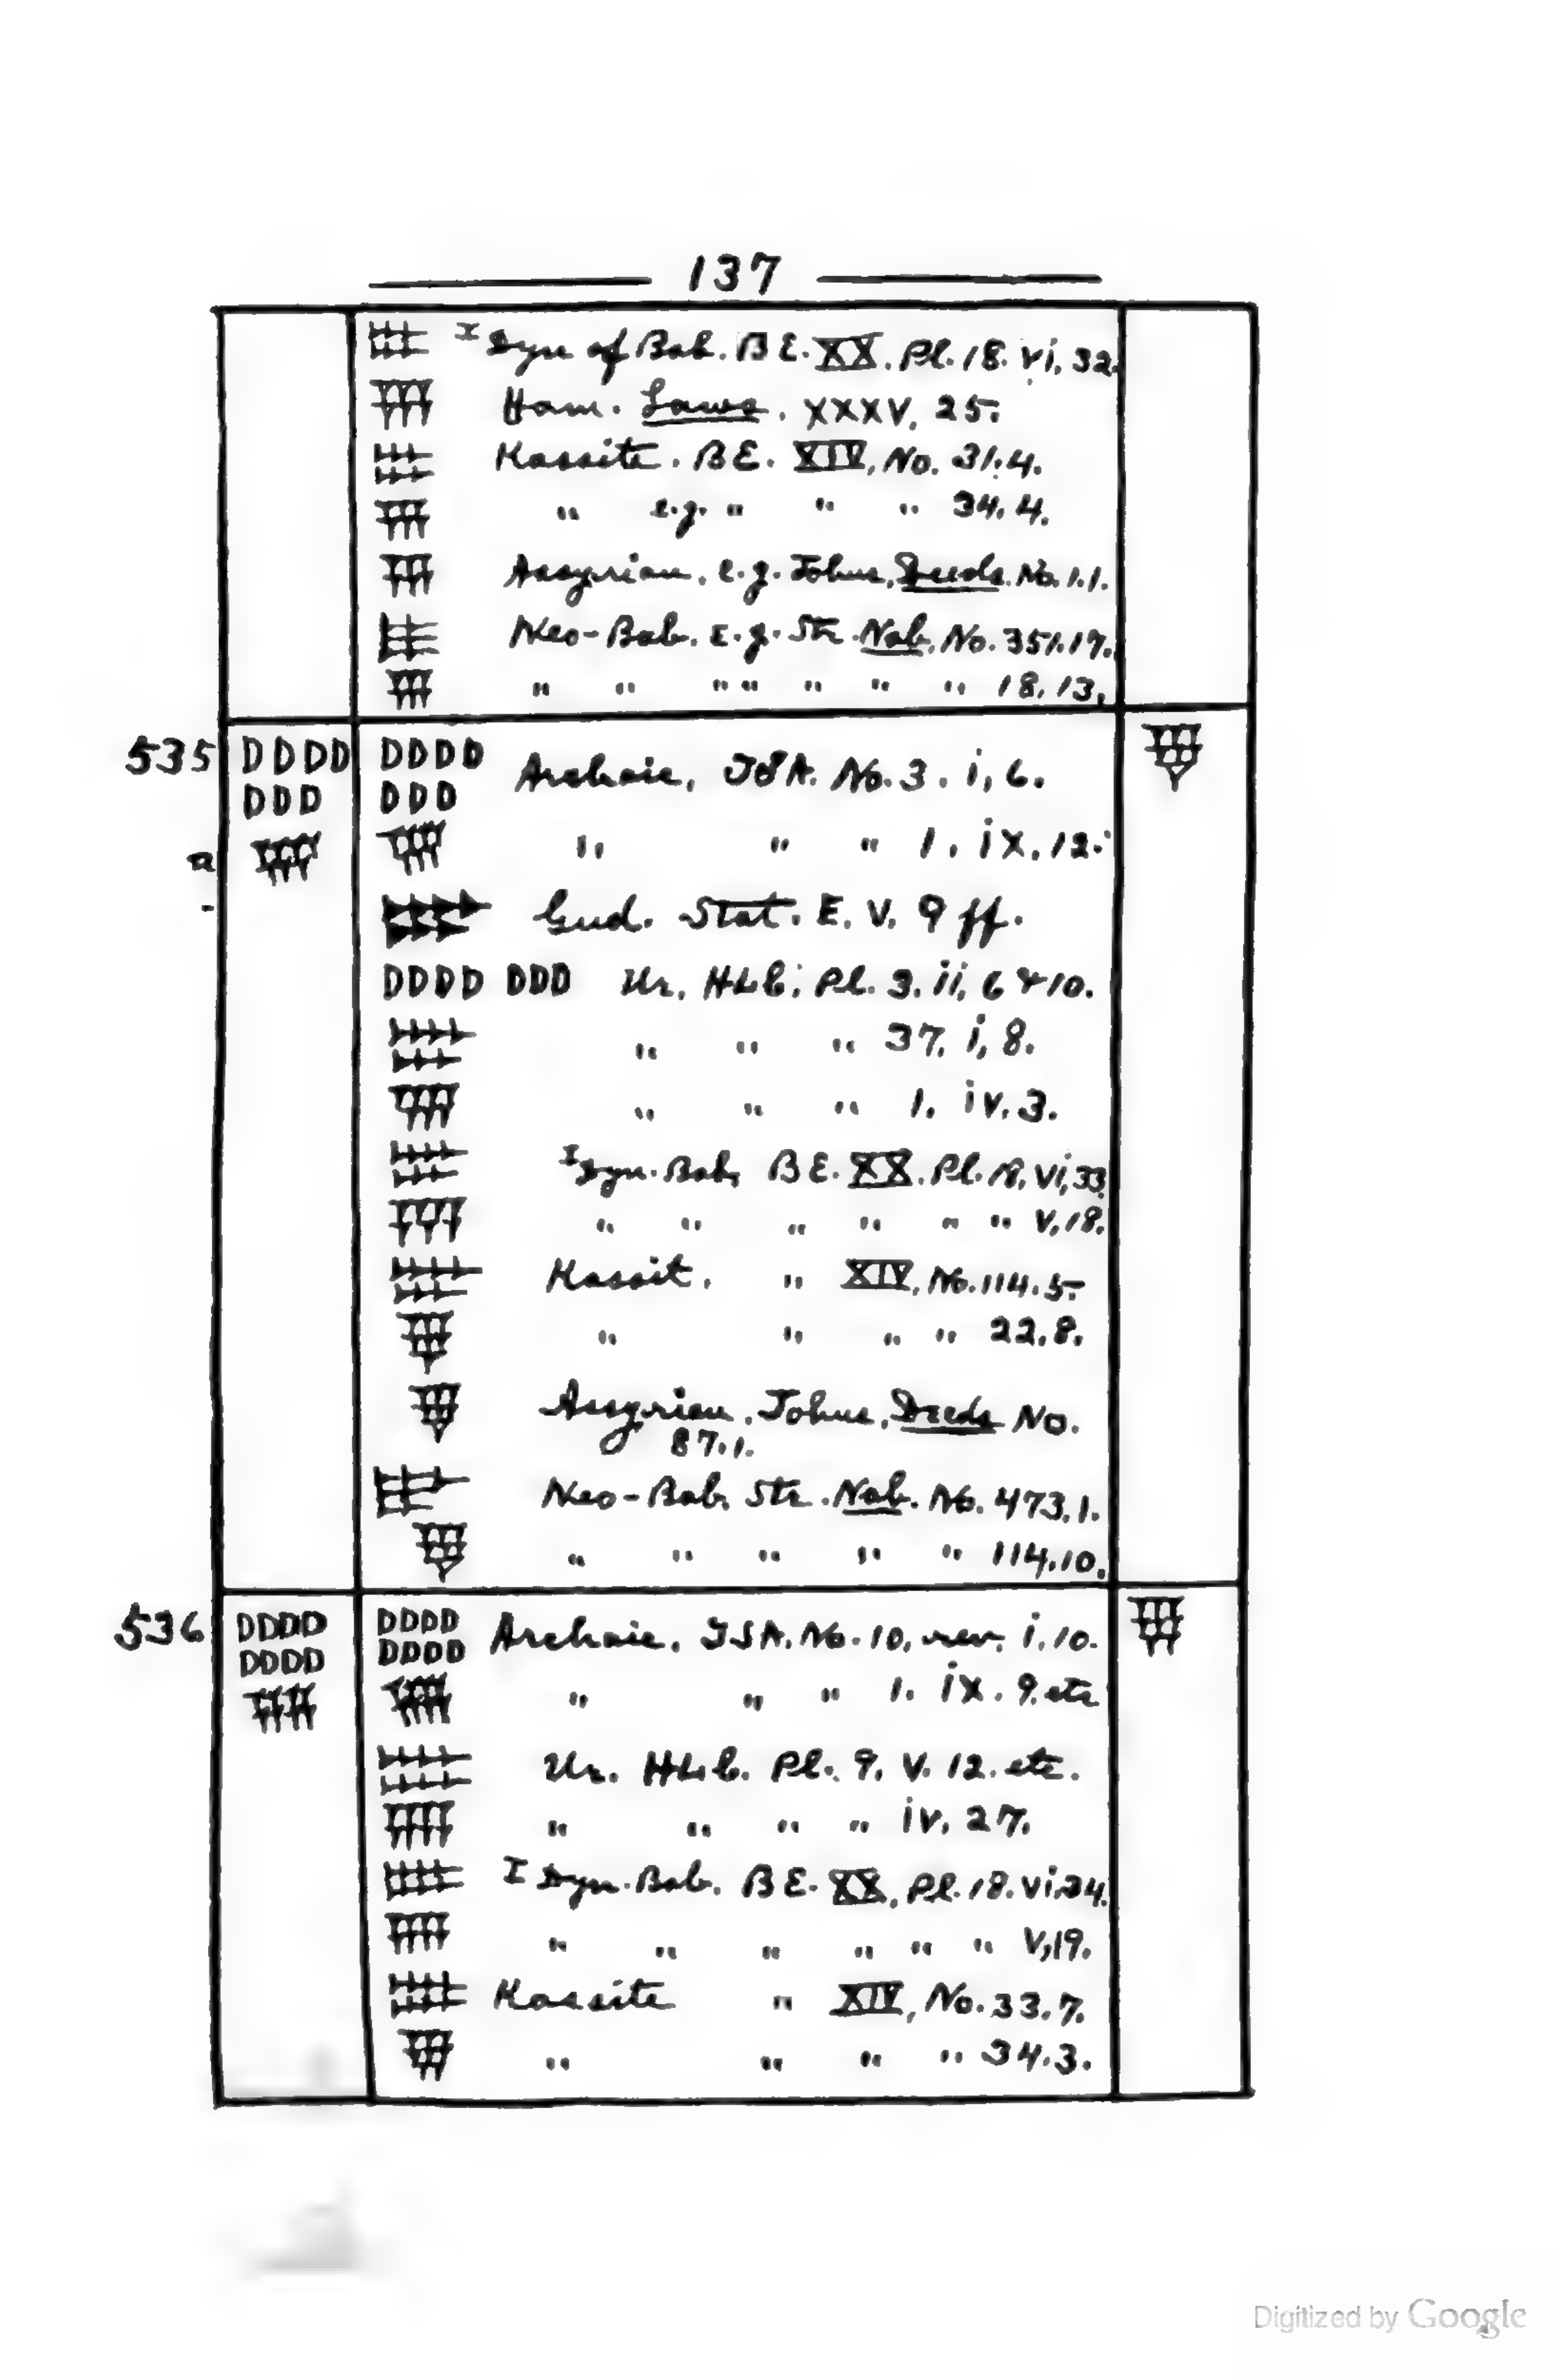 137
I Dyn of Bab. BE. XX. Pl. 18. vi, 32.
Ham. Laws. XXXV, 25.
Kassite. BE. XIV, No. 31.4.
" e.g. " " " 34.4.
Assyrian, e.g. Johns, Deeds. No. 1.1.
Neo-Bab. E.g. Str. Nab. No. 351.17.
" " " " " " " 18.13.
535 DDDD DDDD Archaic, TSA. No. 3. i, 6.
DDD DDD
a " " " 1. ix. 12.
Gud. Stat. E. V. 9 ff.
DDDD DDD Ur, HLC; Pl. 3. ii, 6 + 10.
" " " 37. i, 8.
" " " 1. iv. 3.
I Dyn. Bab, BE. XX. Pl. 18. vi, 33
" " " " " " V, 18.
Kassit. " XIV, No. 114.5.
" " " " 22.8.
Assyrian, Johns, Deeds No.
87.1.
Neo-Bab. Str. Nab. No. 473.1.
" " " " " 114.10.
536 DDDD DDDD Archaic, TSA. No. 10, rev. i, 10.
DDDD DDDD
" " " 1. ix. 9. etc
Ur. HLC. Pl. 9. V. 12. etc.
" " " " iv. 27.
I Dyn. Bab. BE. XX, Pl. 18. vi. 34.
" " " " " " V, 19.
Kassite " XIV, No. 33.7.
" " " " 34.3.
Digitized by Google